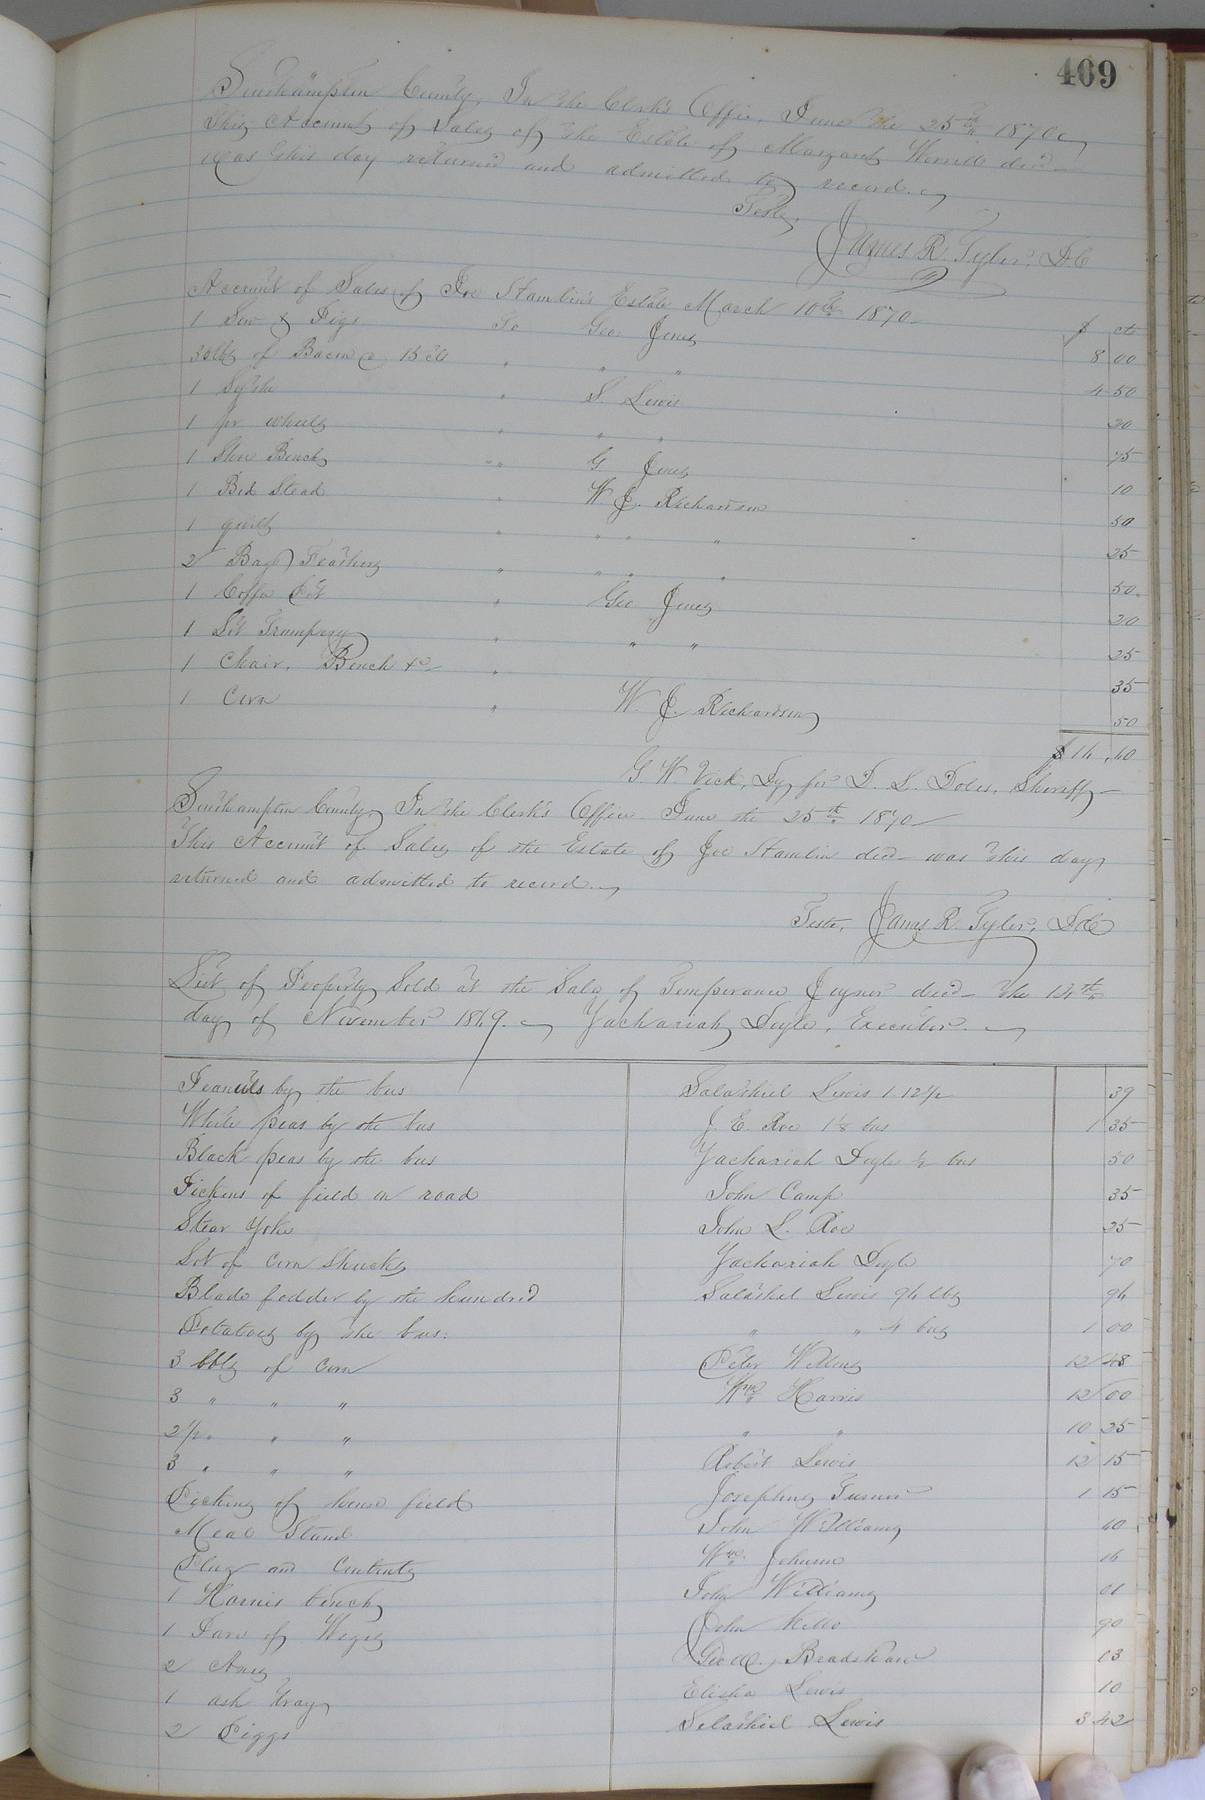 469
Southampton County, In the Clerk's Office, June the 25th 1870
This Account of Sales of the Estate of Margaret Worrell decd
was this day returned and admitted to record.
Teste,
James R. Tyler, D.C
Account of Sales of Joe Hamlin's Estate March 10th 1870
$ cts
1 Sow & Pigs To Geo Jones 8 00
30 lbs of Bacon @ 15 cts " " " 4 50
1 Sythe " S. Lewis 20
1 pr wheels " " " 75
1 Shoe Bench " " G. Jones 10
1 Bed Stead " W J. Richardson 50
1 quilt " " " " 25
2 Bags Feathers " " " " 50
1 Coffee Pot " Geo Jones 20
1 Lot Trumpery " " " 25
1 Chair, Bench &c " 35
1 Corn " W. J. Richardson 50
$ 16.10
G W. Vick, Dy for D. S. Doles, Sheriff
Southampton County, In the Clerk's Office June the 25th 1870
This Account of Sales of the Estate of Joe Hamlin decd was this day
returned and admitted to record.
Teste, James R. Tyler, D.C
List of Property Sold at the Sale of Temperance Joyner decd the 12th
day of November 1869. Zachariah Doyle, Executor.
Peanuts by the bus Salathiel Lewis 1 12/2 39
White peas by the bus J. E. Roe 1 1/8 bus 1 35
Black peas by the bus Zachariah Doyle 1/2 bus 50
Pickens of field on road John Camp 35
Stear Yoke John L. Roe 25
Lot of Corn Shucks Zachariah Doyle 70
Blade fodder by the hundred Salathiel Lewis 94 lbs 94
Potatoes by the bus: " " 4 bus 1 00
3 bbls of corn Peter Williams 12 48
3 " " " Wm Harris 12 00
2 1/2 " " " " " 10 25
3 " " " Robert Lewis 12 15
Picking of house field Josephus Turner 1 15
Meat Stand John Williams 40
Plug and Contents Wm Johnson 16
1 Harnis bench John Williams 01
1 Pare of Wages John 90
2 Axes Geo Bradshaw 03
1 ash tray Elisha Lewis 10
2 Piggs Salathiel Lewis 3 42